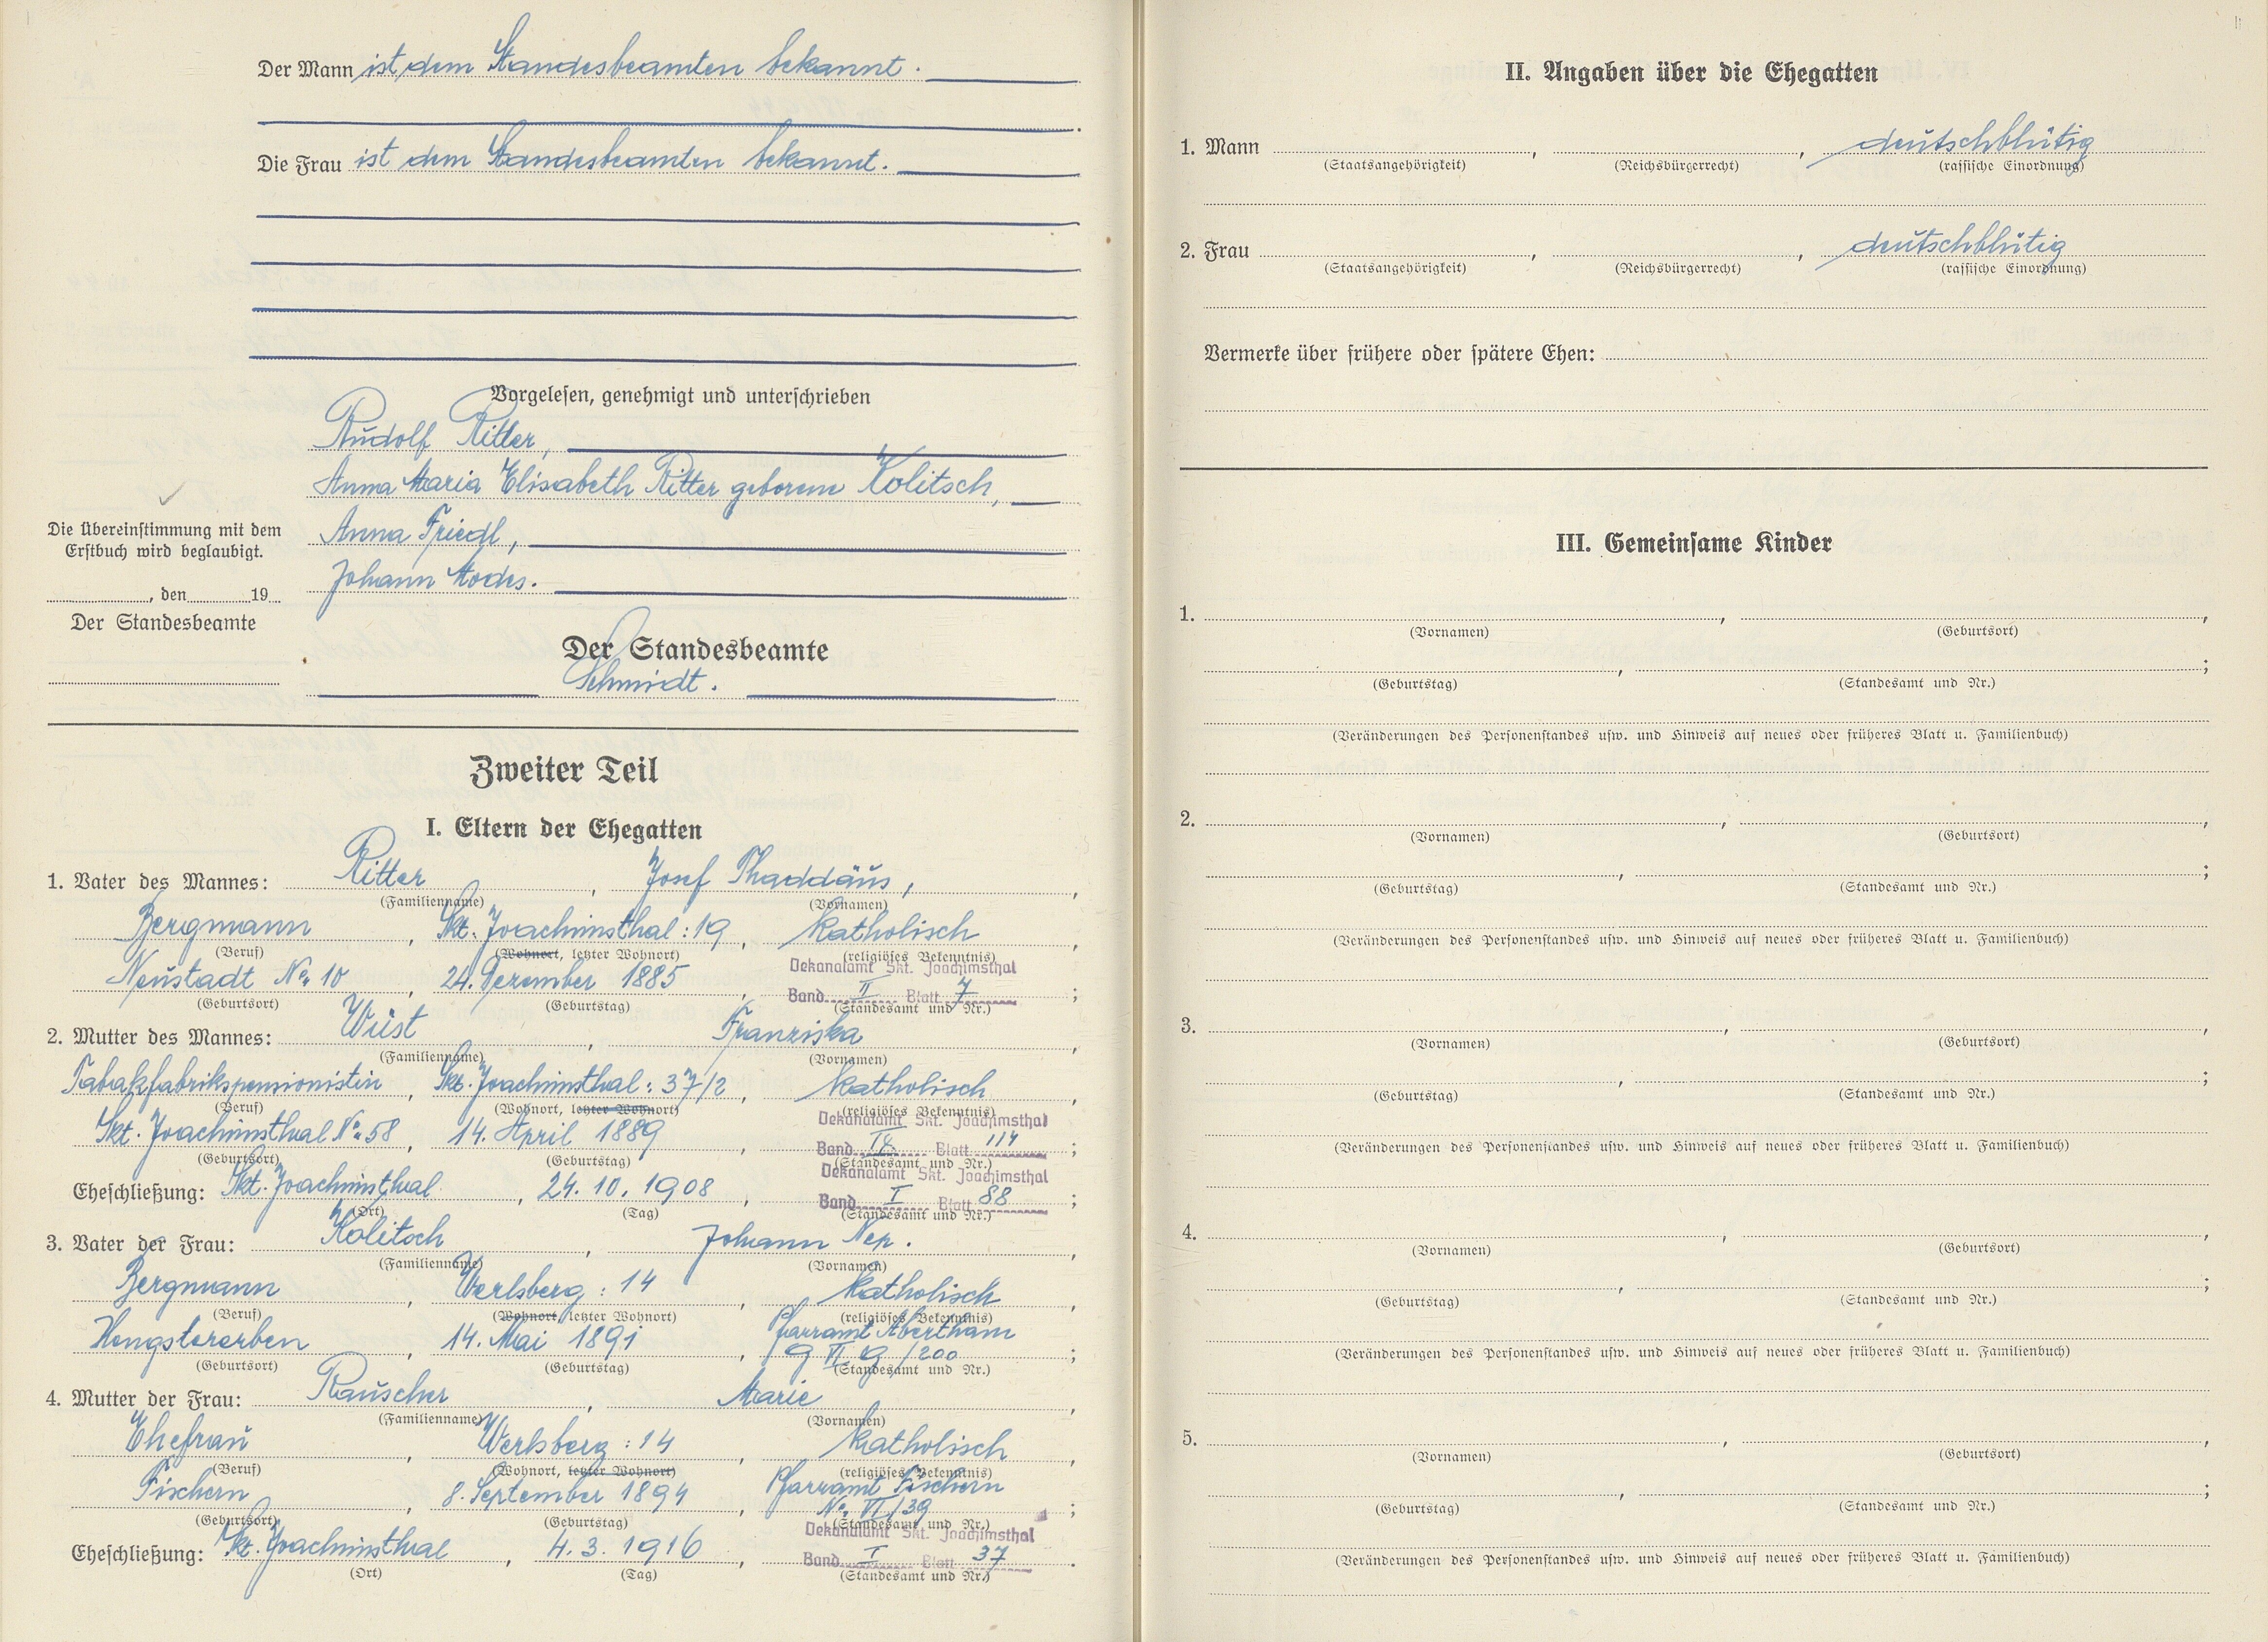 Der Mann ist dem Standesbeamten bekannt.
Die Frau ist dem Standesbeamten bekannt.
Vorgelesen, genehmigt und unterschrieben
Rudolf Ritter,
Anna Maria Elisabeth Ritter geborene Kolitsch,
Anna Friedl,
Johann Modes.
Die Übereinstimmung mit dem
Erstbuch wird beglaubigt.
, den 19
Der Standesbeamte
Der Standesbeamte
Schmidt.
Zweiter Teil
I. Eltern der Ehegatten
1. Vater des Mannes: Ritter, Josef Thaddäus,
(Familienname) (Vornamen)
Bergmann, Skt. Joachimsthal: 19, katholisch,
(Beruf) (Wohnort, letzter Wohnort) (religiöses Bekenntnis)
Dekanalamt Skt. Joachimsthal
Neustadt No 10, 24. Dezember 1885, Band II Blatt 7;
(Geburtsort) (Geburtstag) (Standesamt und Nr.)
2. Mutter des Mannes: Wüst, Franziska,
(Familienname) (Vornamen)
Tabakfabrikspensionistin, Skt. Joachimsthal: 37/2, katholisch,
(Beruf) (Wohnort, letzter Wohnort) (religiöses Bekenntnis)
Dekanalamt Skt. Joachimsthal
Skt. Joachimsthal No 58, 14. April 1889, Band IX Blatt 114;
(Geburtsort) (Geburtstag) (Standesamt und Nr.)
Dekanalamt Skt. Joachimsthal
Eheschließung: Skt. Joachimsthal, 24.10.1908, Band I Blatt 88;
(Ort) (Tag) (Standesamt und Nr.)
3. Vater der Frau: Kolitsch, Johann Nep.,
(Familienname) (Vornamen)
Bergmann, Werlsberg: 14, katholisch,
(Beruf) (Wohnort, letzter Wohnort) (religiöses Bekenntnis)
Pfarramt Abertham
Hengstererben, 14. Mai 1891, 9 VI 9/200;
(Geburtsort) (Geburtstag) (Standesamt und Nr.)
4. Mutter der Frau: Rauscher, Marie,
(Familienname) (Vornamen)
Ehefrau, Werlsberg: 14, katholisch,
(Beruf) (Wohnort, letzter Wohnort) (religiöses Bekenntnis)
Pfarramt Fischern
Fischern, 8. September 1894, No VI/39;
(Geburtsort) (Geburtstag) (Standesamt und Nr.)
Dekanalamt Skt. Joachimsthal
Eheschließung: Skt. Joachimsthal, 4.3.1916, Band I Blatt 37.
(Ort) (Tag) (Standesamt und Nr.)
II. Angaben über die Ehegatten
1. Mann, , deutschblütig
(Staatsangehörigkeit) (Reichsbürgerrecht) (rassische Einordnung)
2. Frau, , deutschblütig
(Staatsangehörigkeit) (Reichsbürgerrecht) (rassische Einordnung)
Vermerke über frühere oder spätere Ehen:
III. Gemeinsame Kinder
1. , ,
(Vornamen) (Geburtsort)
, ;
(Geburtstag) (Standesamt und Nr.)
(Veränderungen des Personenstandes usw. und Hinweis auf neues oder früheres Blatt u. Familienbuch)
2. , ,
(Vornamen) (Geburtsort)
, ;
(Geburtstag) (Standesamt und Nr.)
(Veränderungen des Personenstandes usw. und Hinweis auf neues oder früheres Blatt u. Familienbuch)
3. , ,
(Vornamen) (Geburtsort)
, ;
(Geburtstag) (Standesamt und Nr.)
(Veränderungen des Personenstandes usw. und Hinweis auf neues oder früheres Blatt u. Familienbuch)
4. , ,
(Vornamen) (Geburtsort)
, ;
(Geburtstag) (Standesamt und Nr.)
(Veränderungen des Personenstandes usw. und Hinweis auf neues oder früheres Blatt u. Familienbuch)
5. , ,
(Vornamen) (Geburtsort)
, ;
(Geburtstag) (Standesamt und Nr.)
(Veränderungen des Personenstandes usw. und Hinweis auf neues oder früheres Blatt u. Familienbuch)